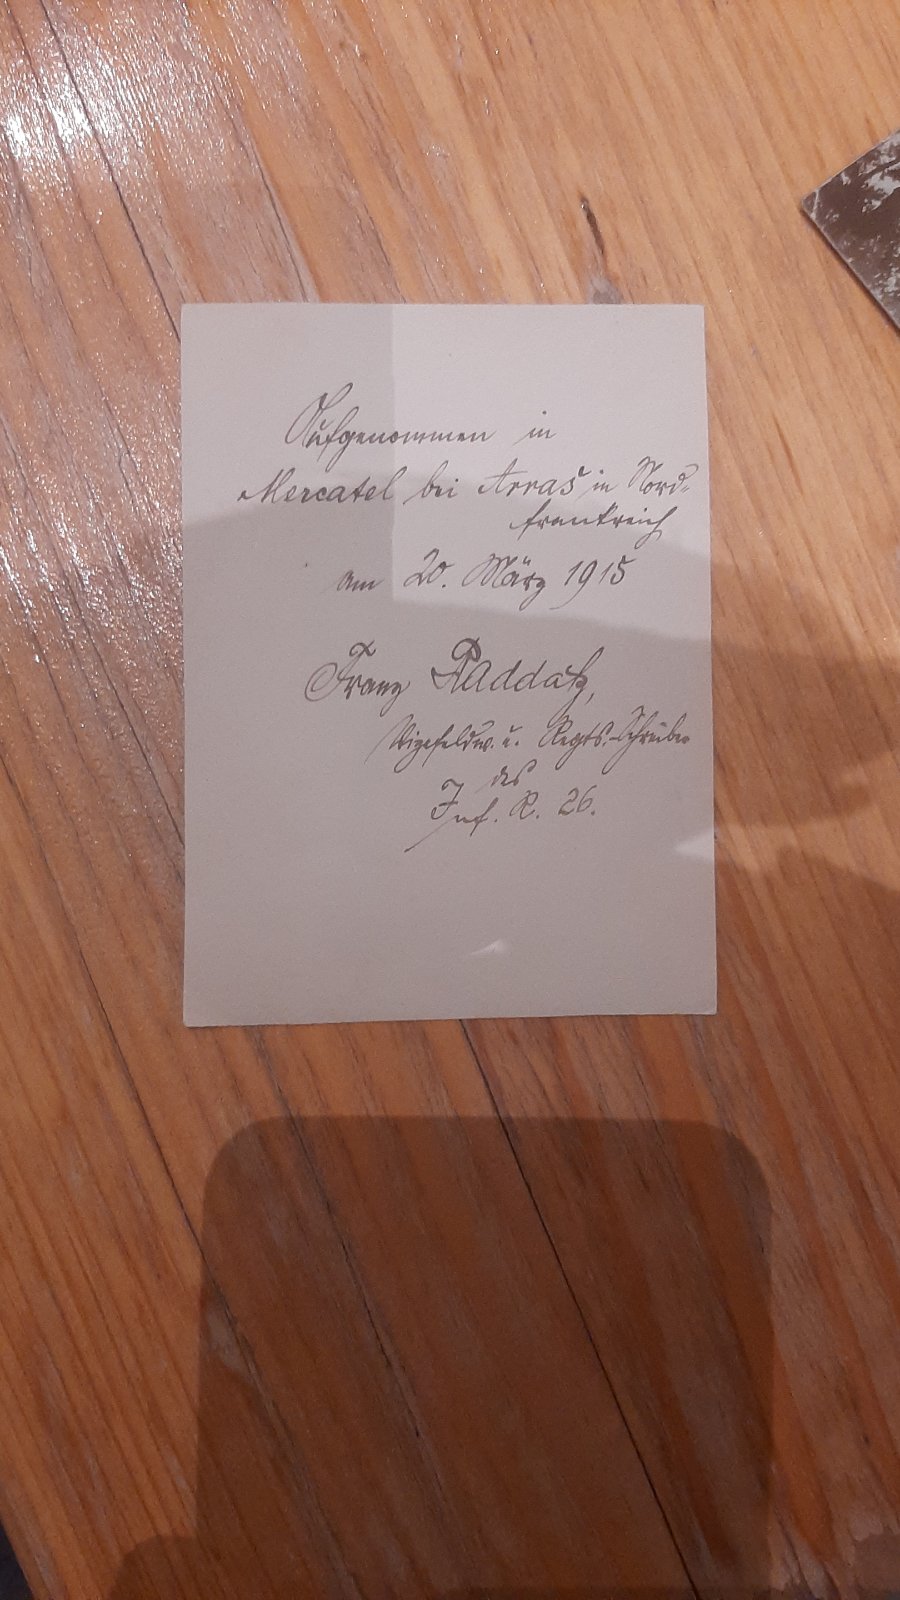 Aufgenommen in
Mercatel bei Arras in Nord-
frankreich
am 20. März 1915
Franz Raddatz,
Vizefeldw. u. Regts.-Schreiber
des
Inf. R. 26.